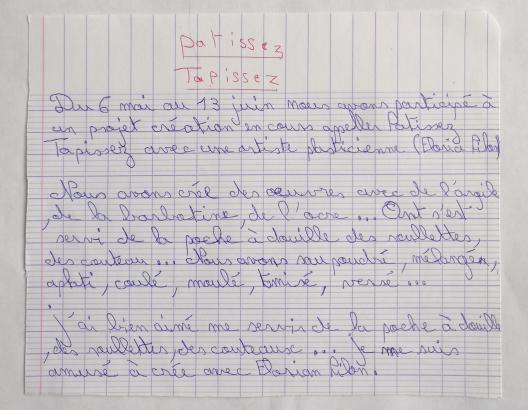 Patissez
Tapissez
Du 6 mai au 13 juin nous avons participé à
un projet création en cours appeller Patissez
Tapissez avec une artiste plasticienne (Floria Pilon)
Nous avons crée des oeuvres avec de l'argile
,de la barbotine, de l'ocre ... Ont s'est
servi de la poche à douille des roullettes,
des couteau ... Nous avons saupoudré, mélangén,
aplati, coulé, moulé, tamisé, versé ...
J'ai bien aimé me servir de la poche à douille
,des roullettes, des couteaux ... je me suis
amusé à crée avec Florian Pilon.